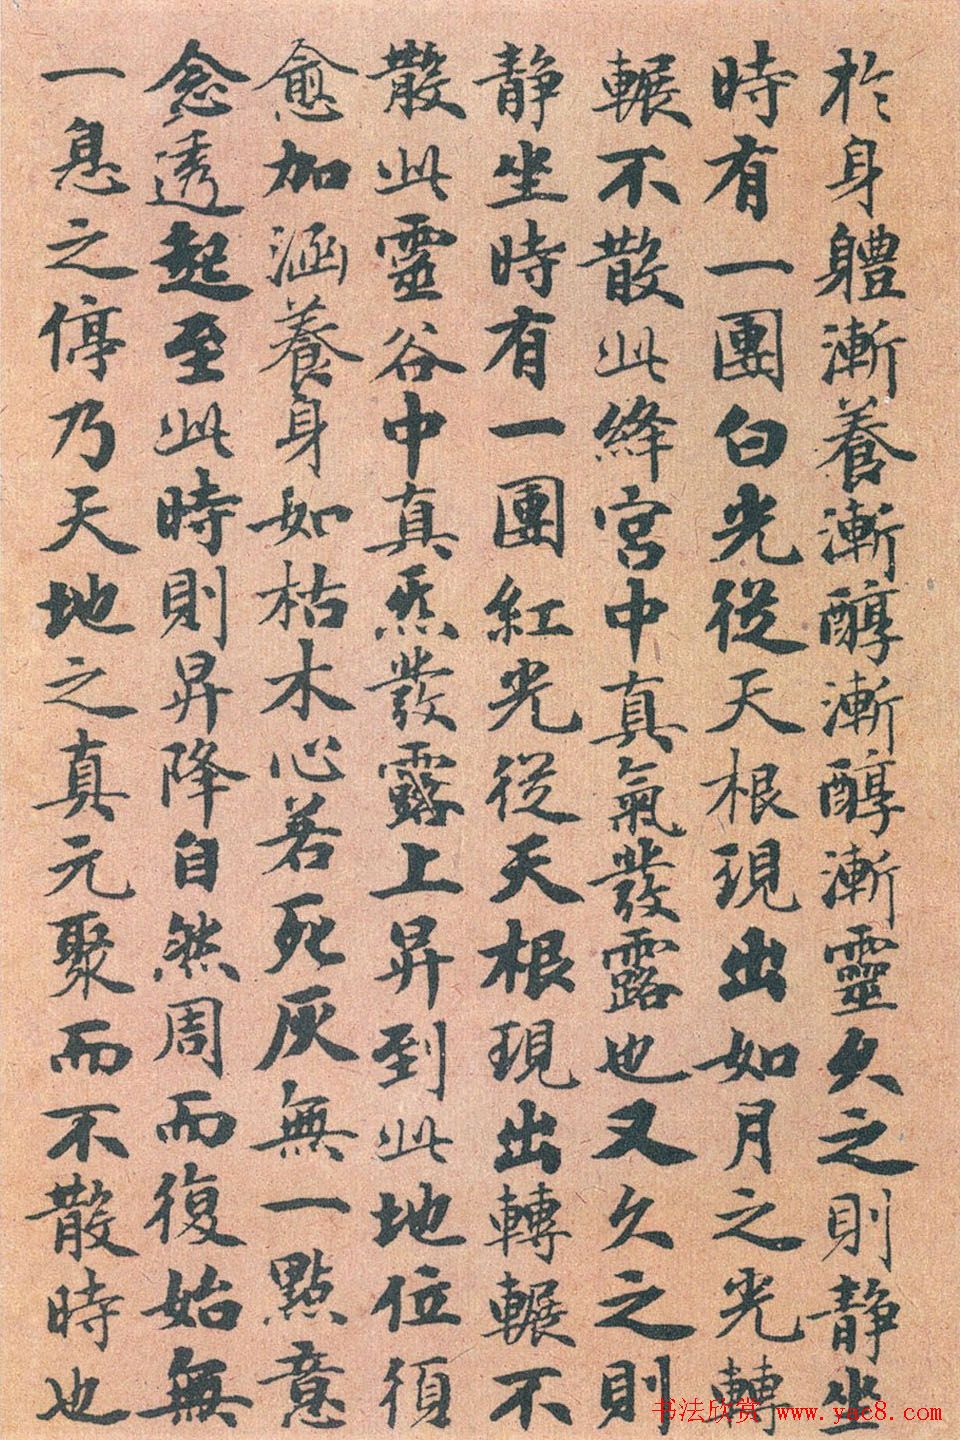 於身軆漸養漸醇漸醇漸靈久之則靜坐
時有一團白光從天根現出如月之光轉
輾不散此絳宮中真氣發露也又久之則
靜坐時有一團紅光從天根現出轉輾不
散此靈谷中真炁發露上昇到此地位須
愈加涵養身如枯木心若死灰無一點意
念透起至此時則昇降自然周而復始無
一息之停乃天地之真元聚而不散時也
书法欣赏 www.yac8.com